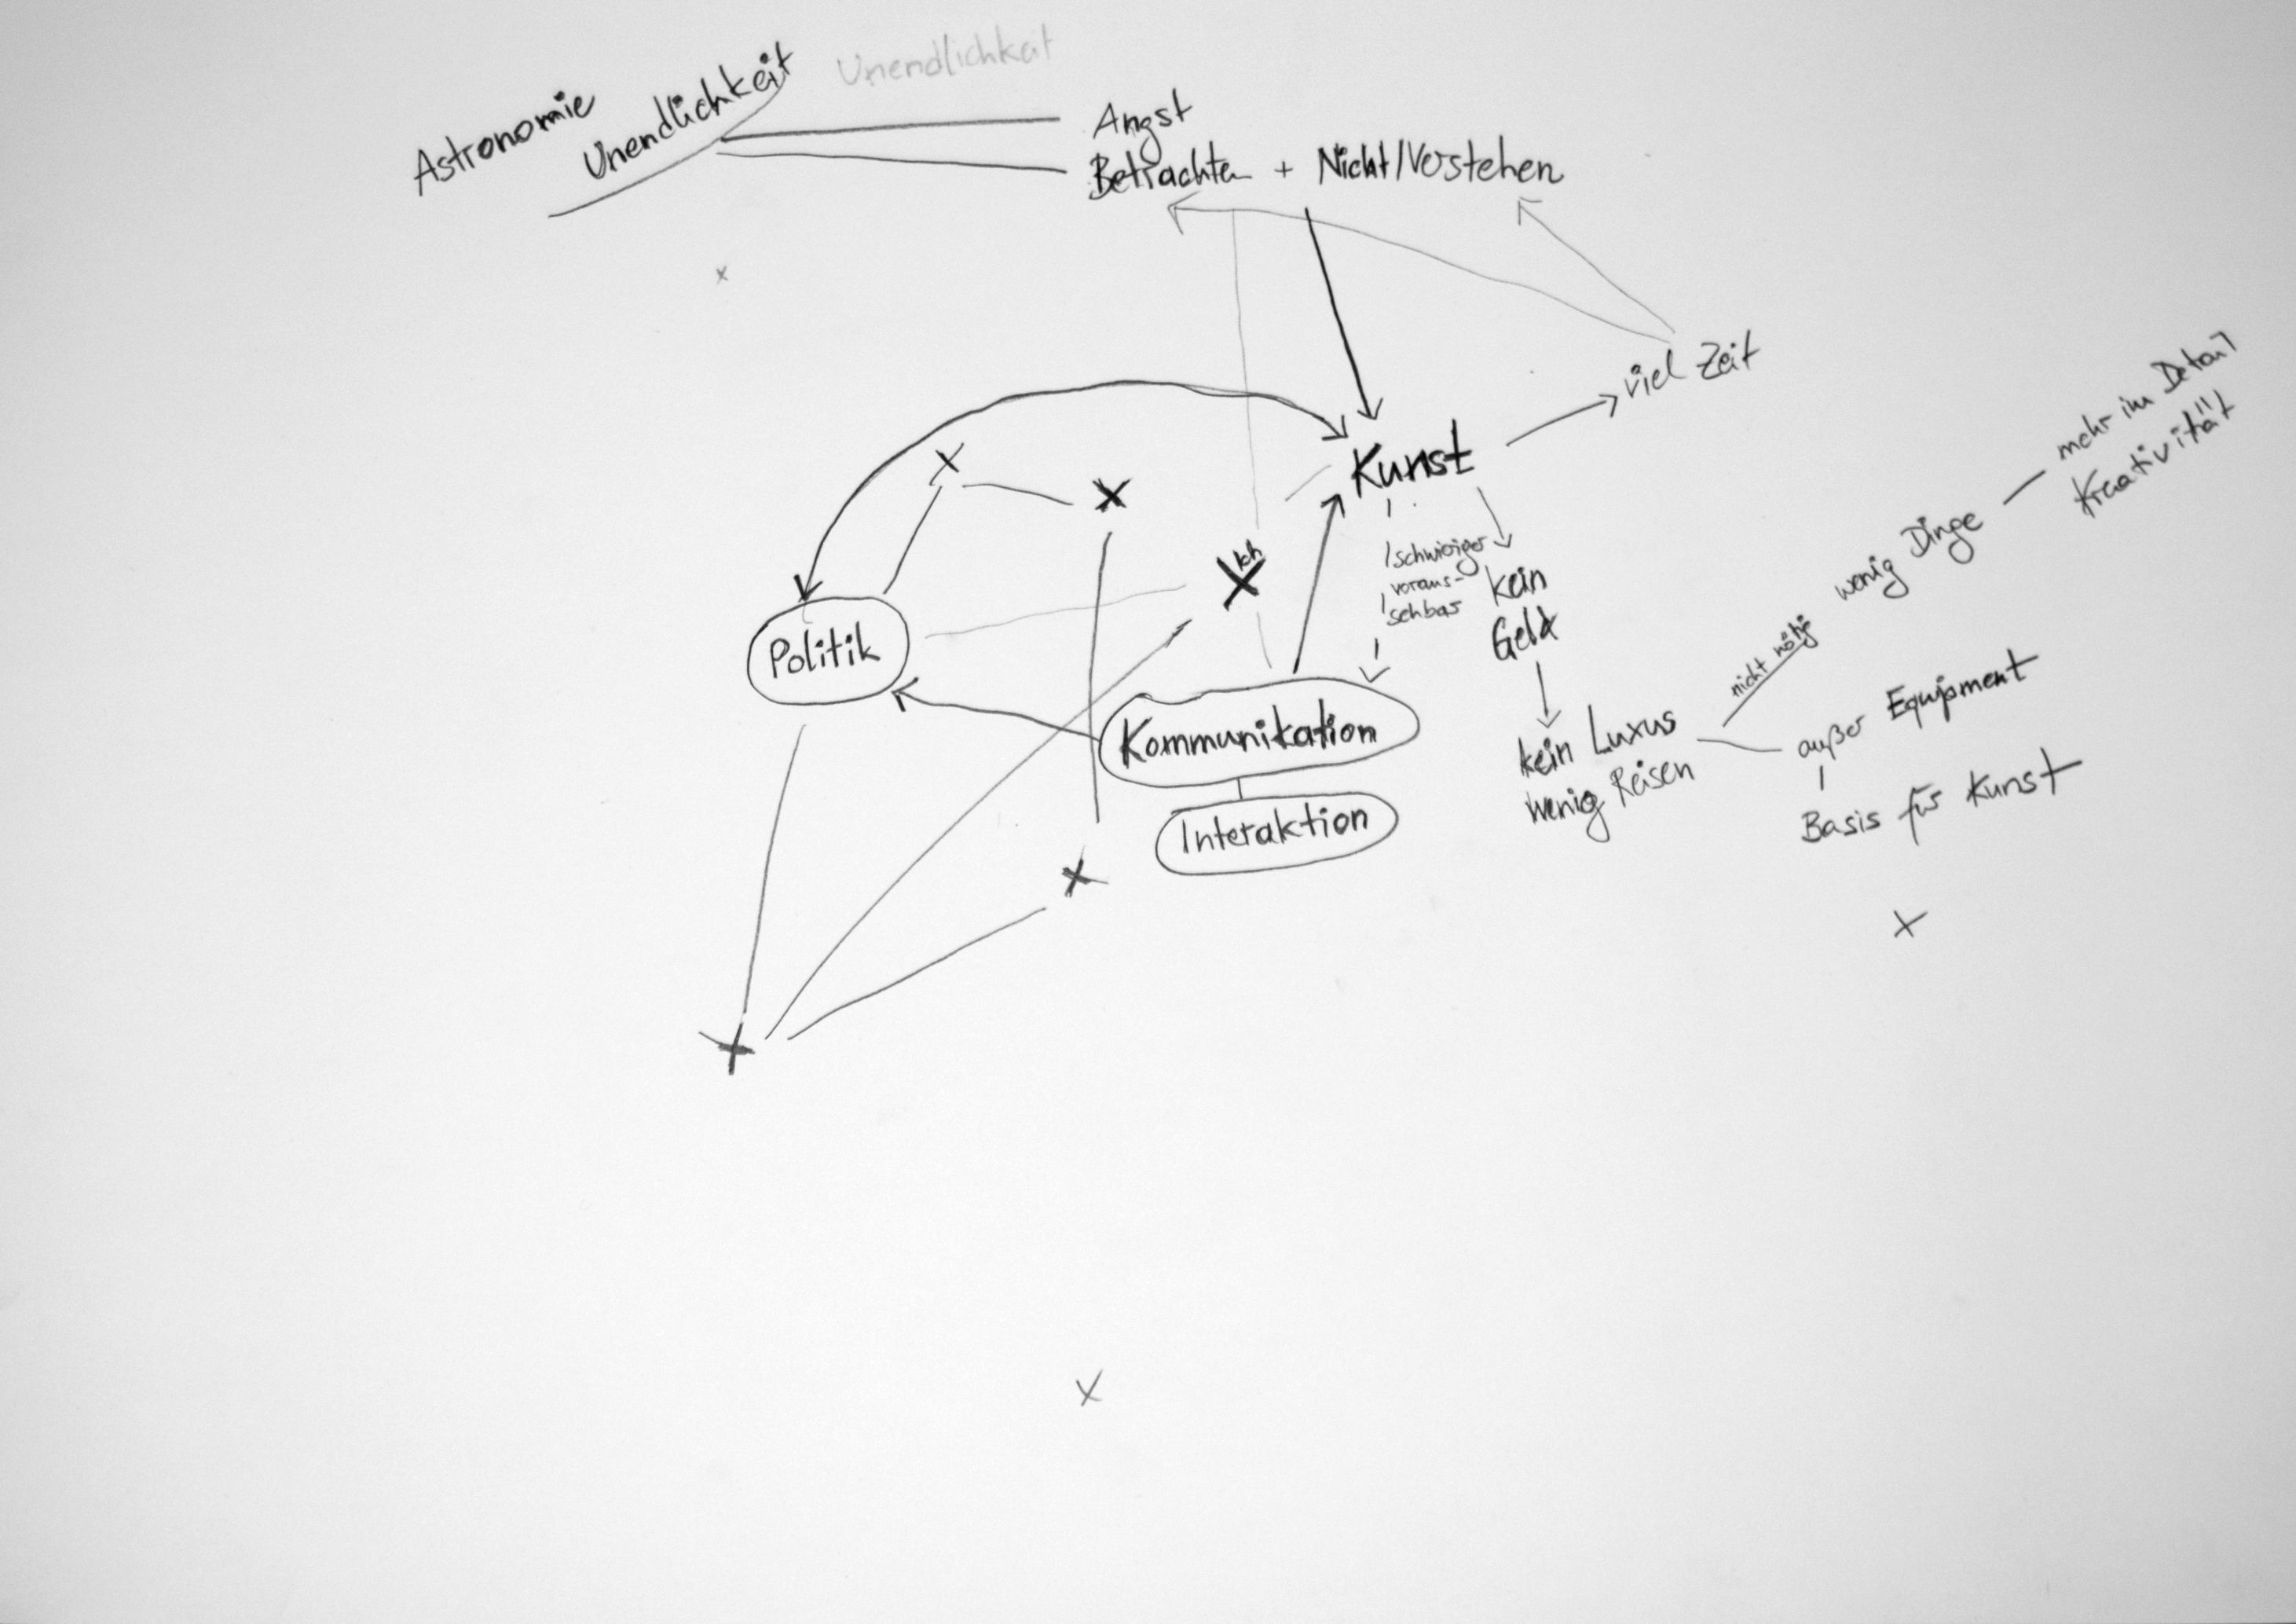 Unendlichkeit
Astronomie
Unendlichkeit
Angst
Betrachten + Nicht/Verstehen
viel Zeit
Kunst
mehr im Detail
Kreativität
wenig Dinge
Ich
schwieriger
voraus-
sehbar
kein
Geld
Politik
nicht nötig
Kommunikation
kein Luxus
wenig Reisen
außer Equipment
Basis für Kunst
Interaktion